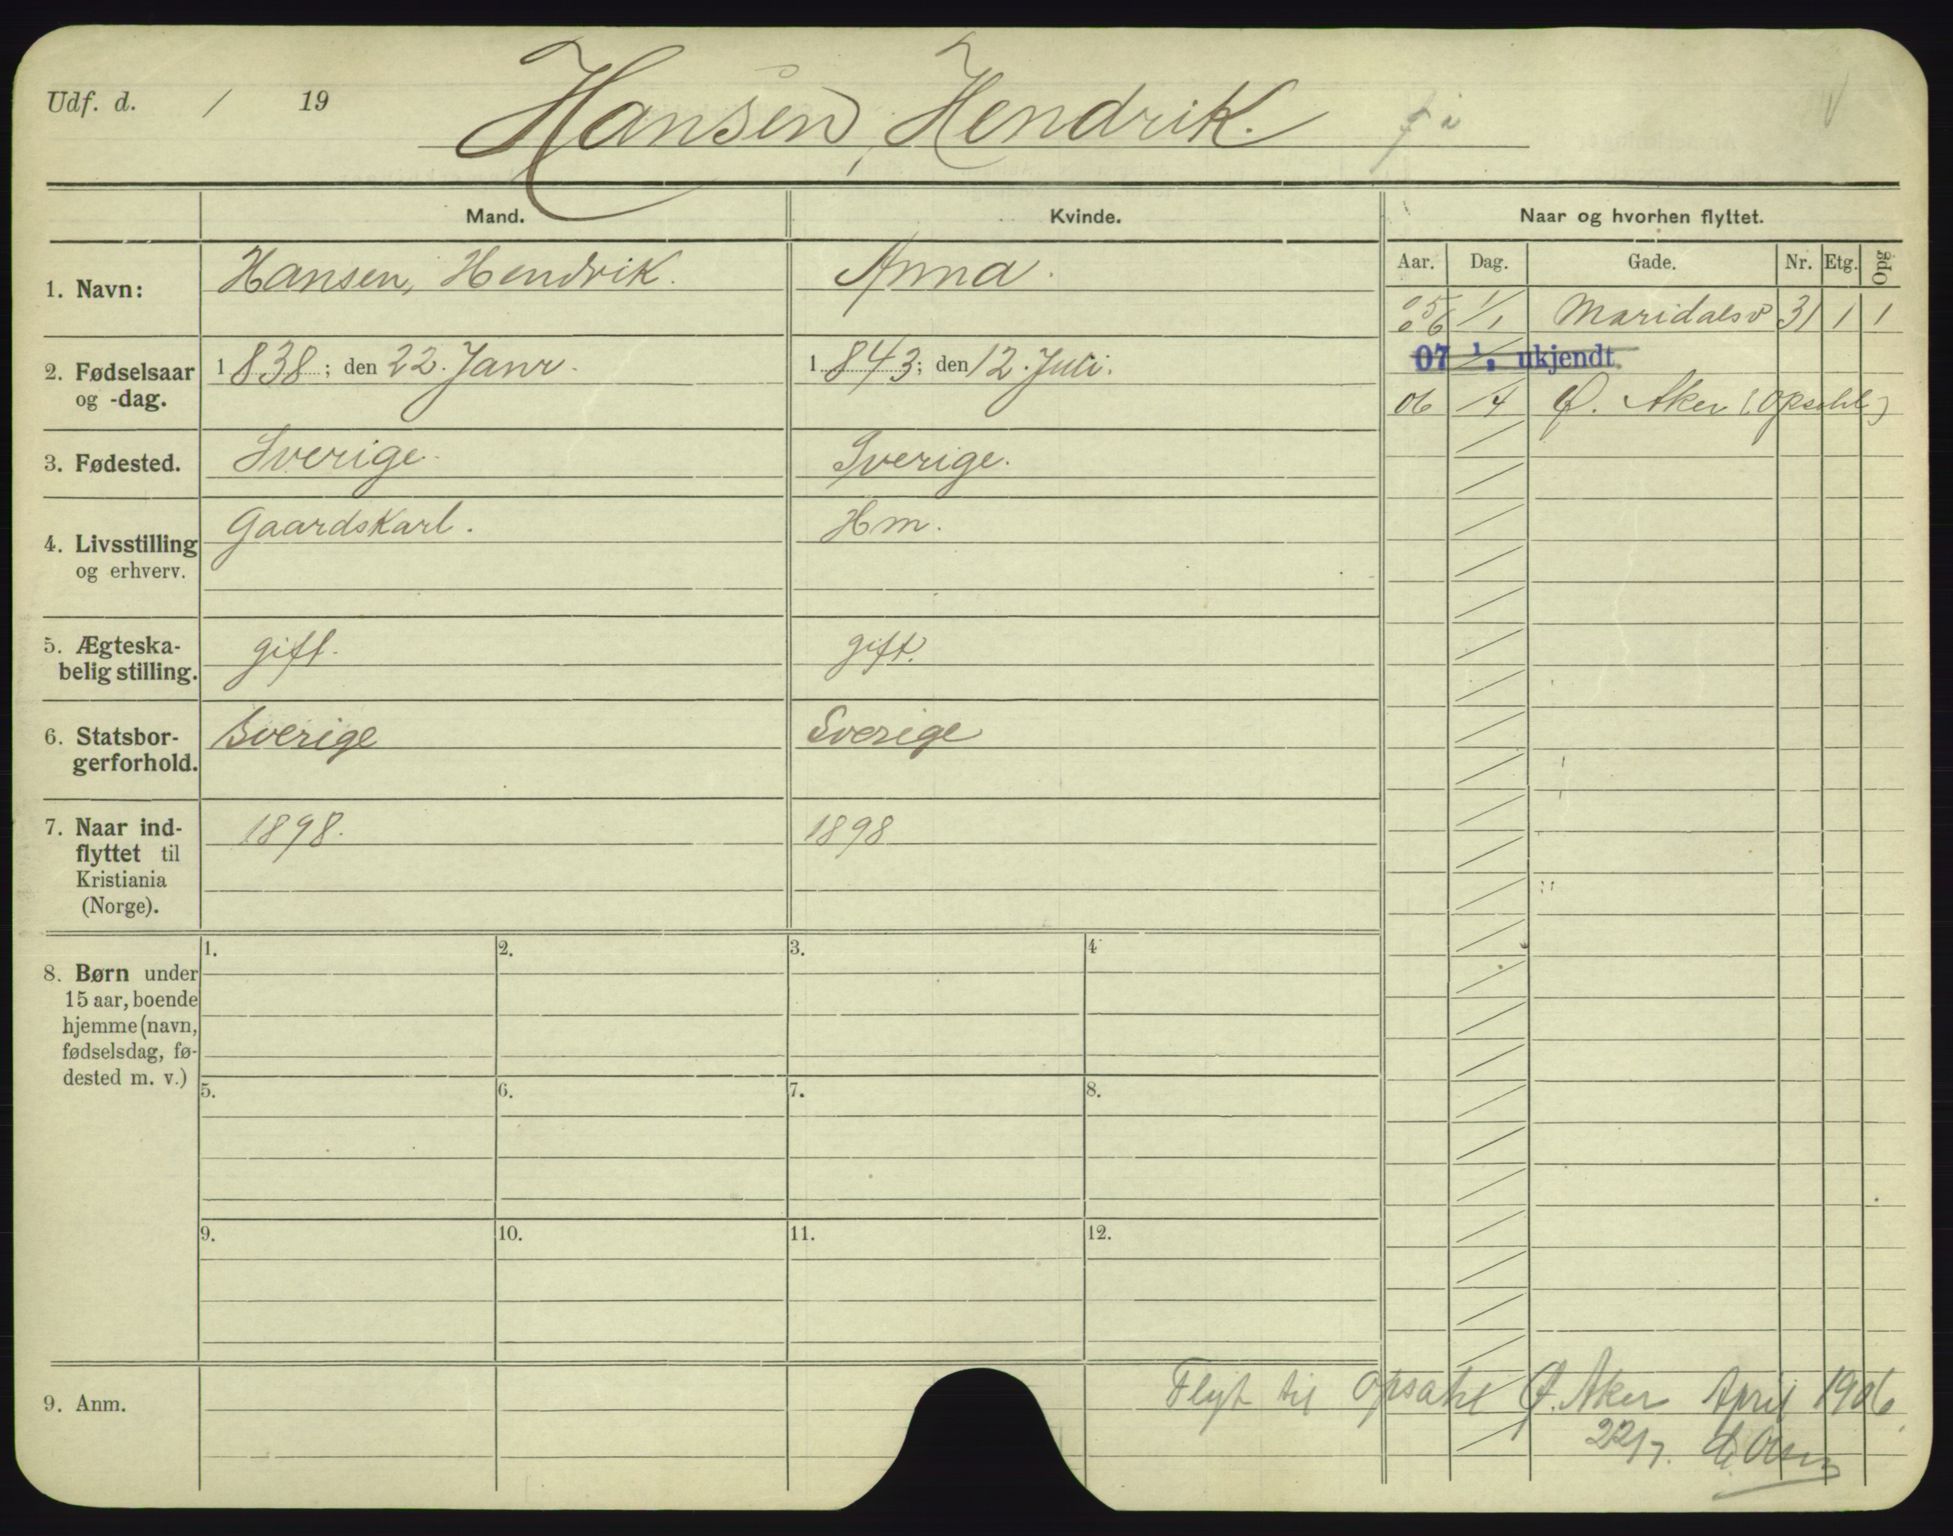 Udf. d. / 19
Hansen, Hendrik.
Mand. Kvinde. Naar og hvorhen flyttet.
Aar. Dag. Gade. Nr. Etg. Opg
1. Navn: Hansen, Hendrik. Anna.
05 06 1/1 Maridalsv 31 1 1
07 1/1 ukjendt
06 /4 Ø. Aker (Opsahl)
2. Fødselsaar og -dag. 1838; den 22. Janr. 1843; den 12. Juli.
3. Fødested. Sverige. Sverige.
4. Livsstilling og erhverv. Gaardskarl. Hm.
5. Ægteska-
belig stilling. gift. gift.
6. Statsbor-
gerforhold. Sverige Sverige
7. Naar ind-
flyttet til
Kristiania
(Norge). 1898. 1898
8. Børn under
15 aar, boende
hjemme (navn,
fødselsdag, fø-
dested m. v.)
1. 2. 3. 4
5. 6. 7. 8.
9. 10. 11. 12.
9. Anm.
Flyt til Opsahl Ø. Aker April 1906.
22/7.